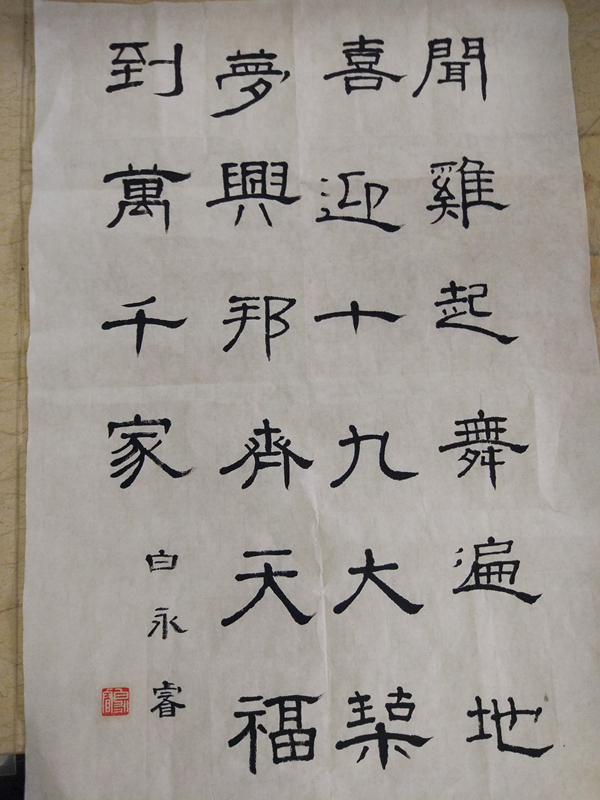 聞雞起舞遍地
喜迎十九大築
夢興邦齊天福
到萬千家
白永睿